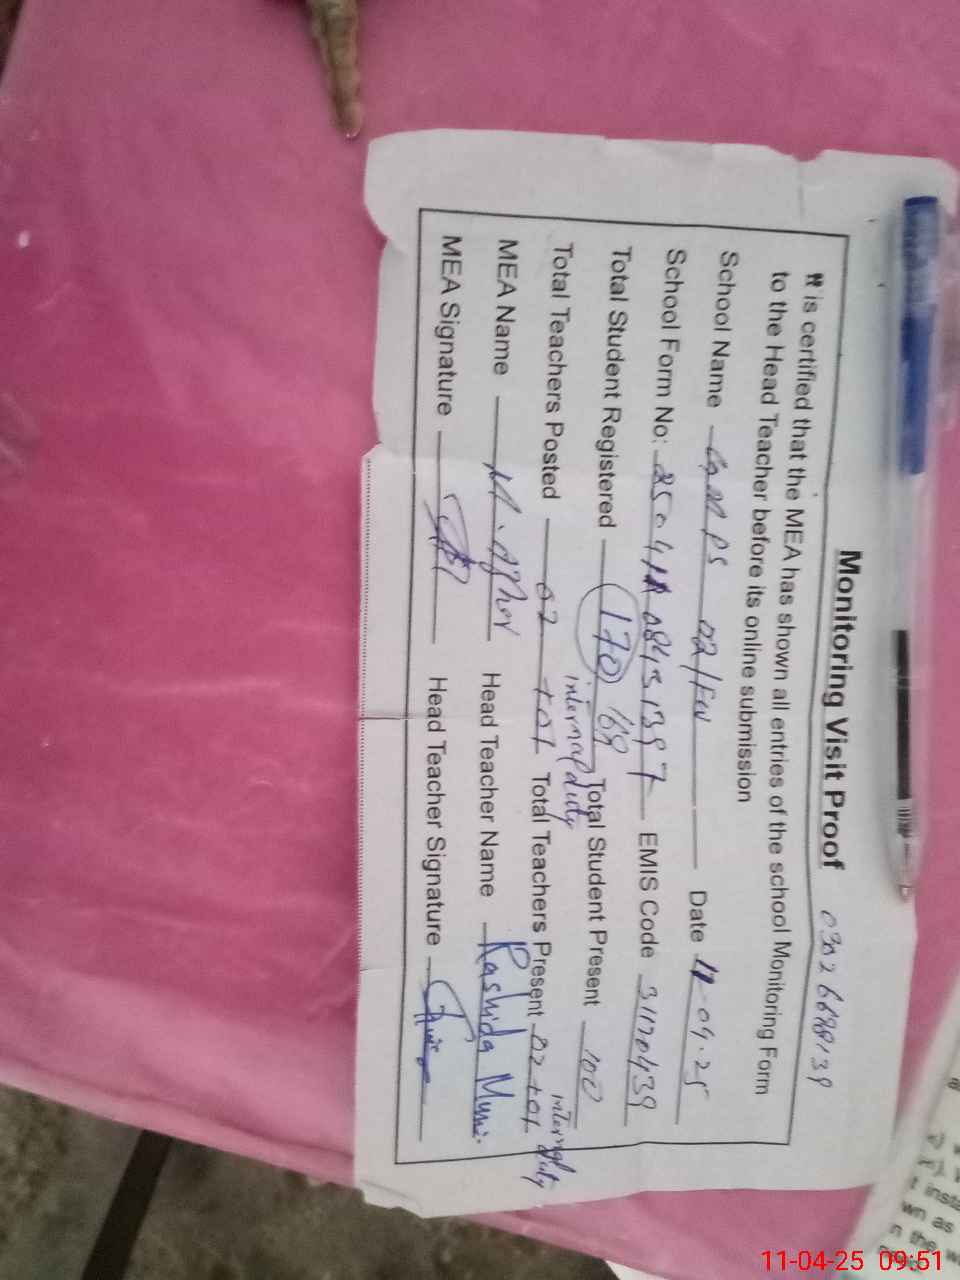 Monitoring Visit Proof 03026698139
It is certified that the MEA has shown all entries of the school Monitoring Form
to the Head Teacher before its online submission
School Name GMPS 02/FW Date 11-04-25
School Form No: EMIS Code 31170439
Total Student Registered 170 168 Total Student Present 100
internal duty internal duty
Total Teachers Posted 02 +01 Total Teachers Present 02 +01
MEA Name Head Teacher Name Rashida
MEA Signature Head Teacher Signature
11-04-25 09:51